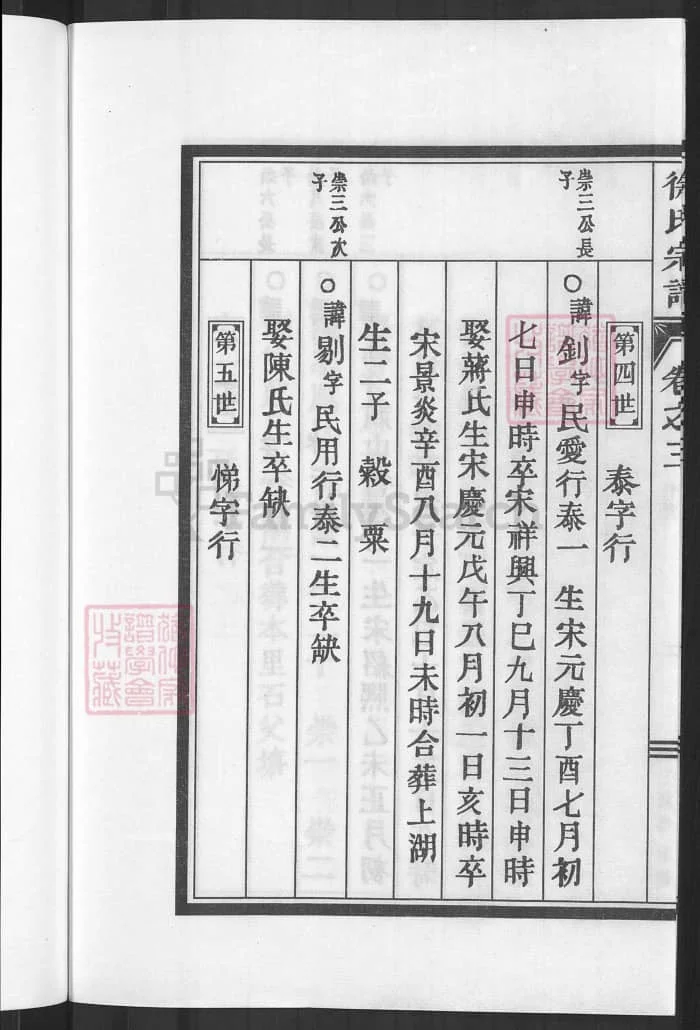 徐氏宗譜 卷之三
第四世 泰字行
崇三公長子
○諱釗字民愛行泰一 生宋元慶丁酉七月初
七日申時卒宋祥興丁巳九月十三日申時
娶蔣氏生宋慶元戊午八月初一日亥時卒
宋景炎辛酉八月十九日未時合葬上湖
生二子 穀 粟
崇三公次子
○諱剔字民用行泰二生卒缺
娶陳氏生卒缺
第五世 悌字行
FamilySearch